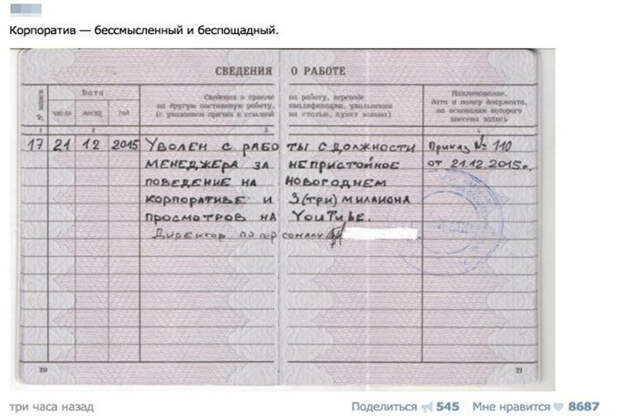 Корпоратив — бессмысленный и беспощадный.
СВЕДЕНИЯ О РАБОТЕ
Дата
Сведения о приеме на работу, переводе
на другую постоянную работу, квалификации, увольнении
(с указанием причин и ссылкой на статью, пункт закона)
Наименование,
дата и номер документа,
на основании которого
внесена запись
№ записи
число месяц год
1 2 3 4
17 21 12 2015 Уволен с работы с должности Приказ № 110
менеджера за непристойное от 21.12.2015г.
поведение на новогоднем
корпоративе и 3(три) милиона
просмотров на YouTube.
Директор по персоналу
20 21
три часа назад Поделиться 545 Мне нравится 8687